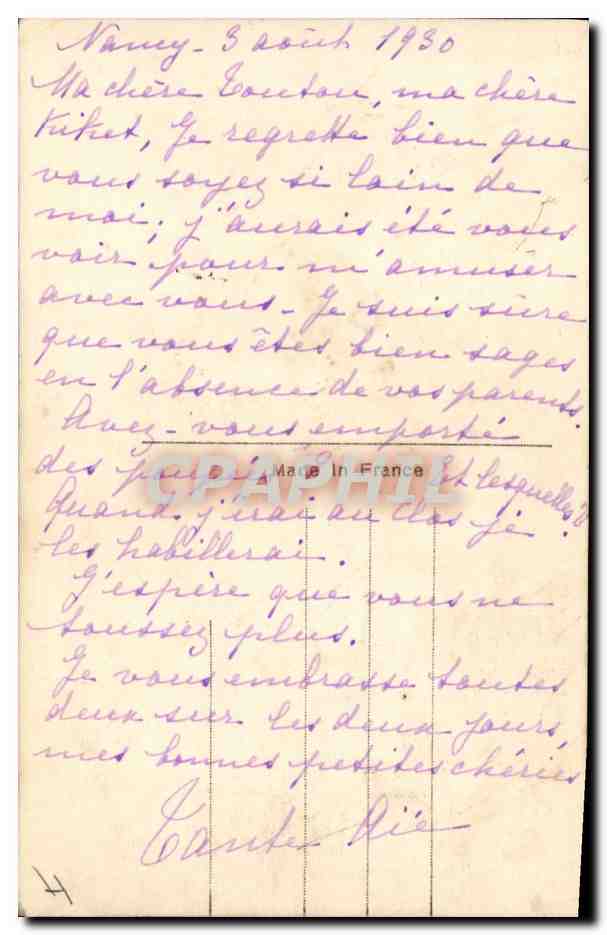 Nancy - 3 août 1930
Ma chère Touton, ma chère
Kiket, Je regrette bien que
vous soyez si loin de
moi ; j'aurais été vous
voir pour m'amuser
avec vous - Je suis sûre
que vous êtes bien sages
en l'absence de vos parents.
Avez-vous emporté
des Et lesquelles ?
Made In France
CPAPHIL
Quand j'irai au Clos je
les habillerai.
J'espère que vous ne
toussez plus.
Je vous embrasse toutes
deux sur les deux joues,
mes bonnes petites chéries
Tante Aïe
H